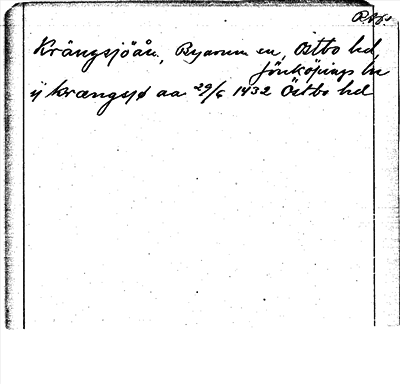 Krängsjöån, Byarum sn, Östbo hd,
Jönköpings län
ij krængsiø aa 29/6 1432 Östbo hd